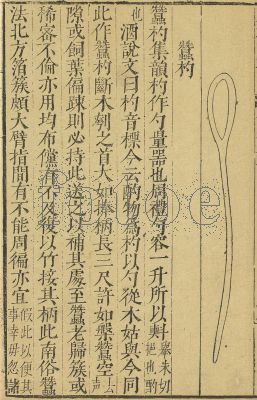 蠶杓
蠶杓集韻杓作勺量器也周禮勺容一升所以㪺舉朱切挹也酌
也酒說文曰杓音標今云酌物爲杓以勺從木姑與今同
此作蠶杓斷木刳之首大如捧柄長三尺許如槃蠶空去
隙或飼葉偏疎則必持此送之以補其處至蠶老歸簇或
稀密不倫亦用均布儻有不及復以竹接其柄此南俗蠶
法北方箔簇頗大臂指間有不能周徧亦宜假此以便其事幸毋忽諸